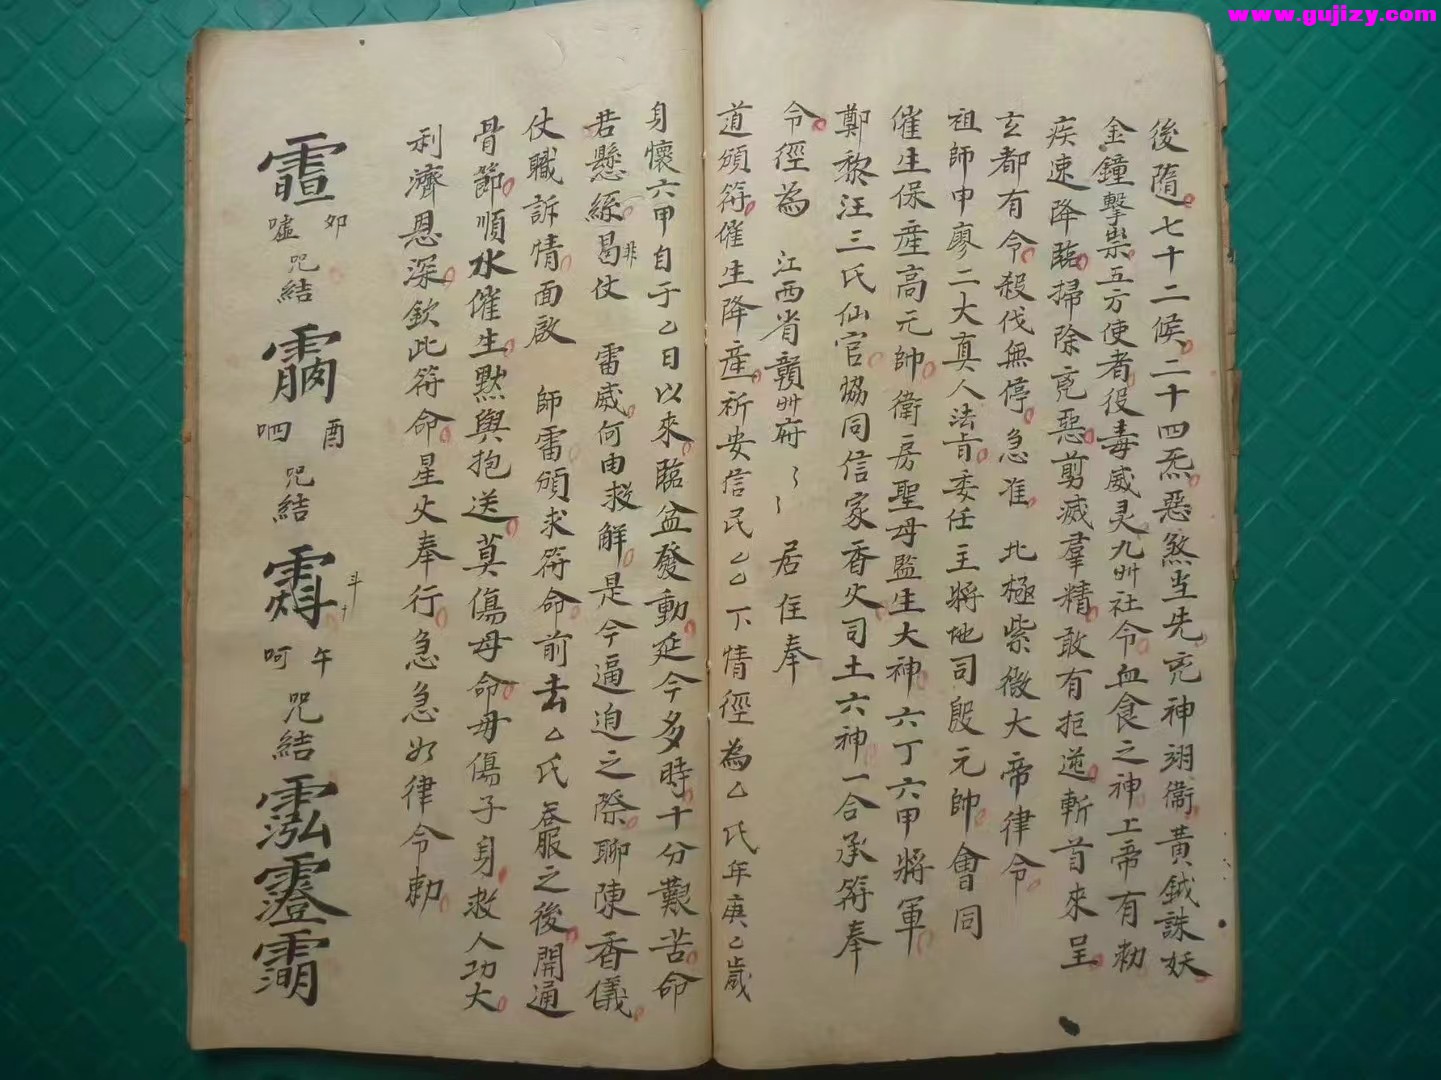 www.gujizy.com
後隨七十二候二十四炁惡煞當先兇神翊衛黃鉞誅妖
金鐘擊祟五方使者役毒威灵九州社令血食之神上帝有勑
疾速降臨掃除兇惡剪滅羣精敢有拒逆斬首來呈
玄都有令殺伐無停急准 北極紫微大帝律令
祖師申廖二大真人法旨委任主將地司殷元帥會同
催生保產高元帥衛房聖母監生大神六丁六甲將軍
鄭黎汪三氏仙官協同信家香火司土六神一合承符奉
令徑為 江西省贛州府〻〻居住奉
道頒符催生降產祈安信民乙乙下情徑為乙氏年庚乙歲
身懷六甲自于乙日以來臨盆發動延今多時十分艱苦命
若懸絲曷仗 雷威何由救解是今逼迫之際聊陳香儀
非
仗職訴情面啟 師雷頒求符命前去乙氏吞服之後開通
骨節順水催生默與抱送莫傷母命毋傷子身救人功大
利濟恩深欽此符命星火奉行急急如律令勅
卯
噓
咒結
酉
呬
咒結
斗
午
呵
咒結